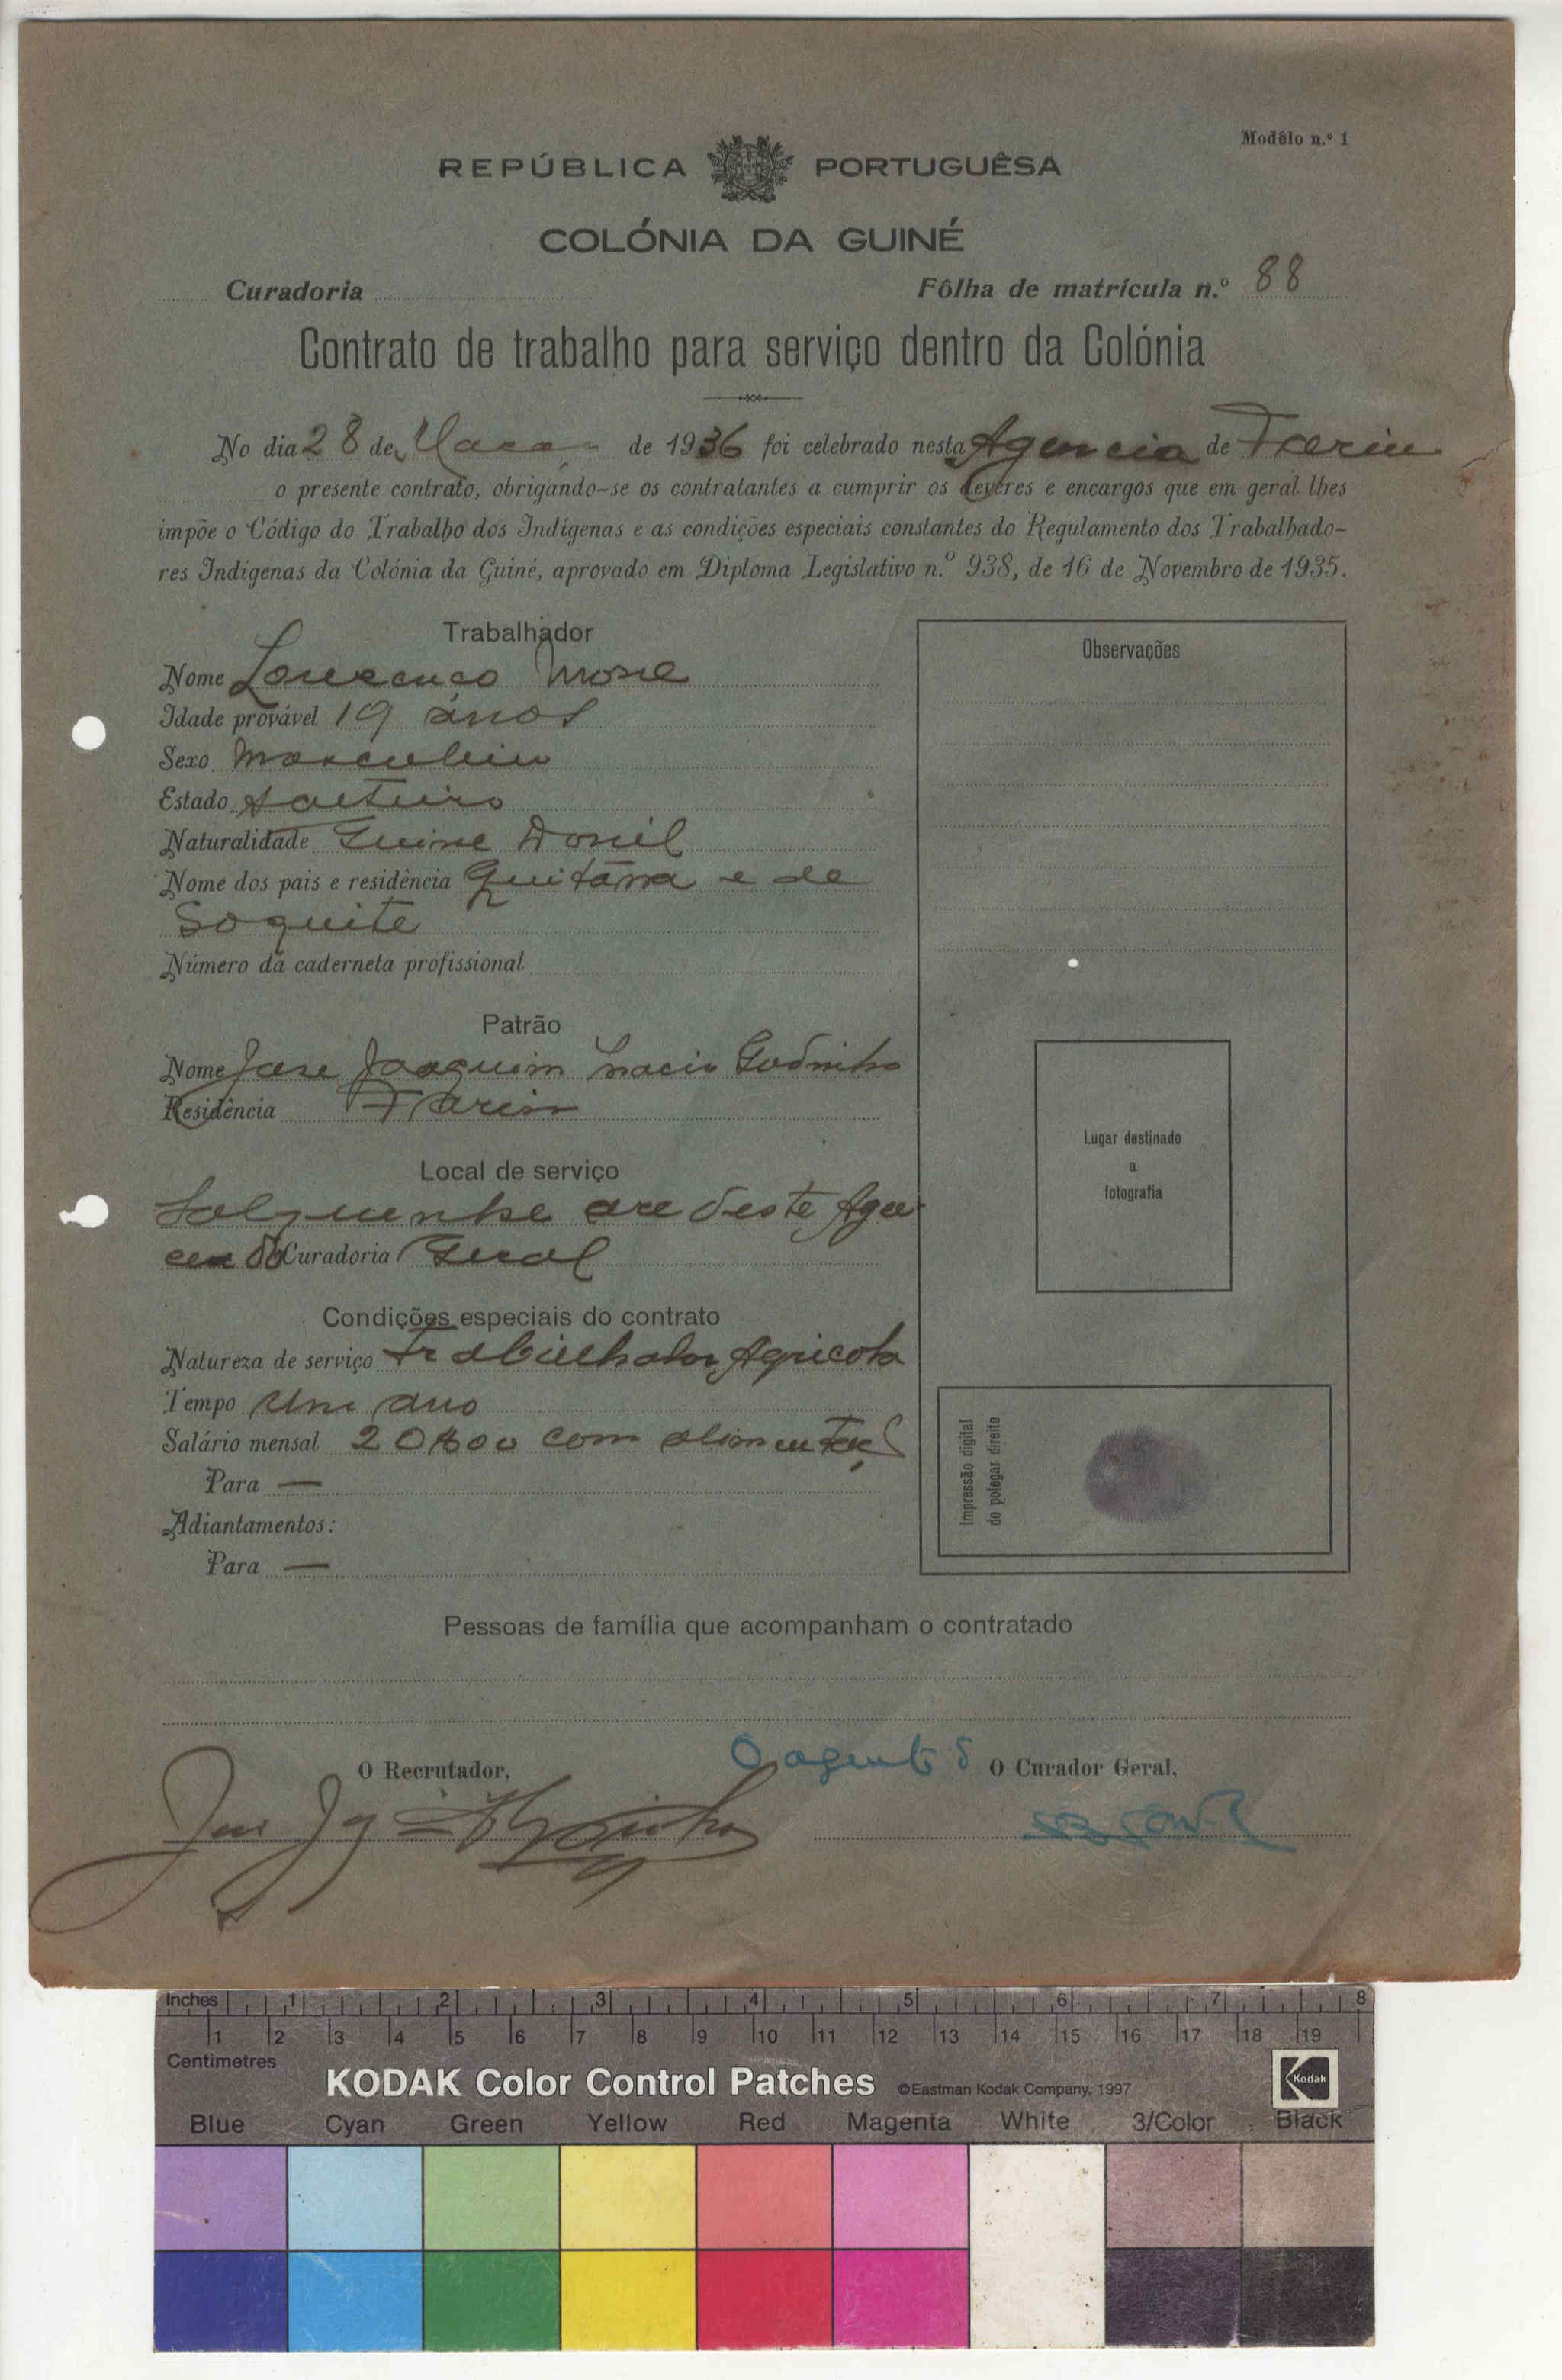 Modêlo n.º 1
REPÚBLICA PORTUGUÊSA
COLÓNIA DA GUINÉ
Curadoria Fôlha de matrícula n.º 88
Contrato de trabalho para serviço dentro da Colónia
No dia 28 de de 1936 foi celebrado nesta Agencia de Farim
o presente contrato, obrigando-se os contratantes a cumprir os deveres e encargos que em geral lhes
impõe o Código do Trabalho dos Indígenas e as condições especiais constantes do Regulamento dos Trabalhado-
res Indígenas da Colónia da Guiné, aprovado em Diploma Legislativo n.º 938, de 16 de Novembro de 1935.
Trabalhador
Observações
Nome Lourenço
Idade provável 19 anos
Sexo masculino
Estado solteiro
Naturalidade Guiné
Nome dos pais e residência e de
Soquite
Número da caderneta profissional
Patrão
Nome Jose Joaquim Godinho
Residência Farim
Lugar destinado
a
fotografia
Local de serviço
deste Agen
cia do Curadoria Geral
Condições especiais do contrato
Natureza de serviço trabalhador Agricola
Tempo Um ano
Salário mensal 20$00 com
Para —
Adiantamentos:
Para —
Impressão digital
do polegar direito
Pessoas de família que acompanham o contratado
O Recrutador, O agente d O Curador Geral,
Inches 1 2 3 4 5 6 7 8
1 2 3 4 5 6 7 8 9 10 11 12 13 14 15 16 17 18 19
Centimetres
KODAK Color Control Patches ©Eastman Kodak Company, 1997 Kodak
Blue Cyan Green Yellow Red Magenta White 3/Color Black